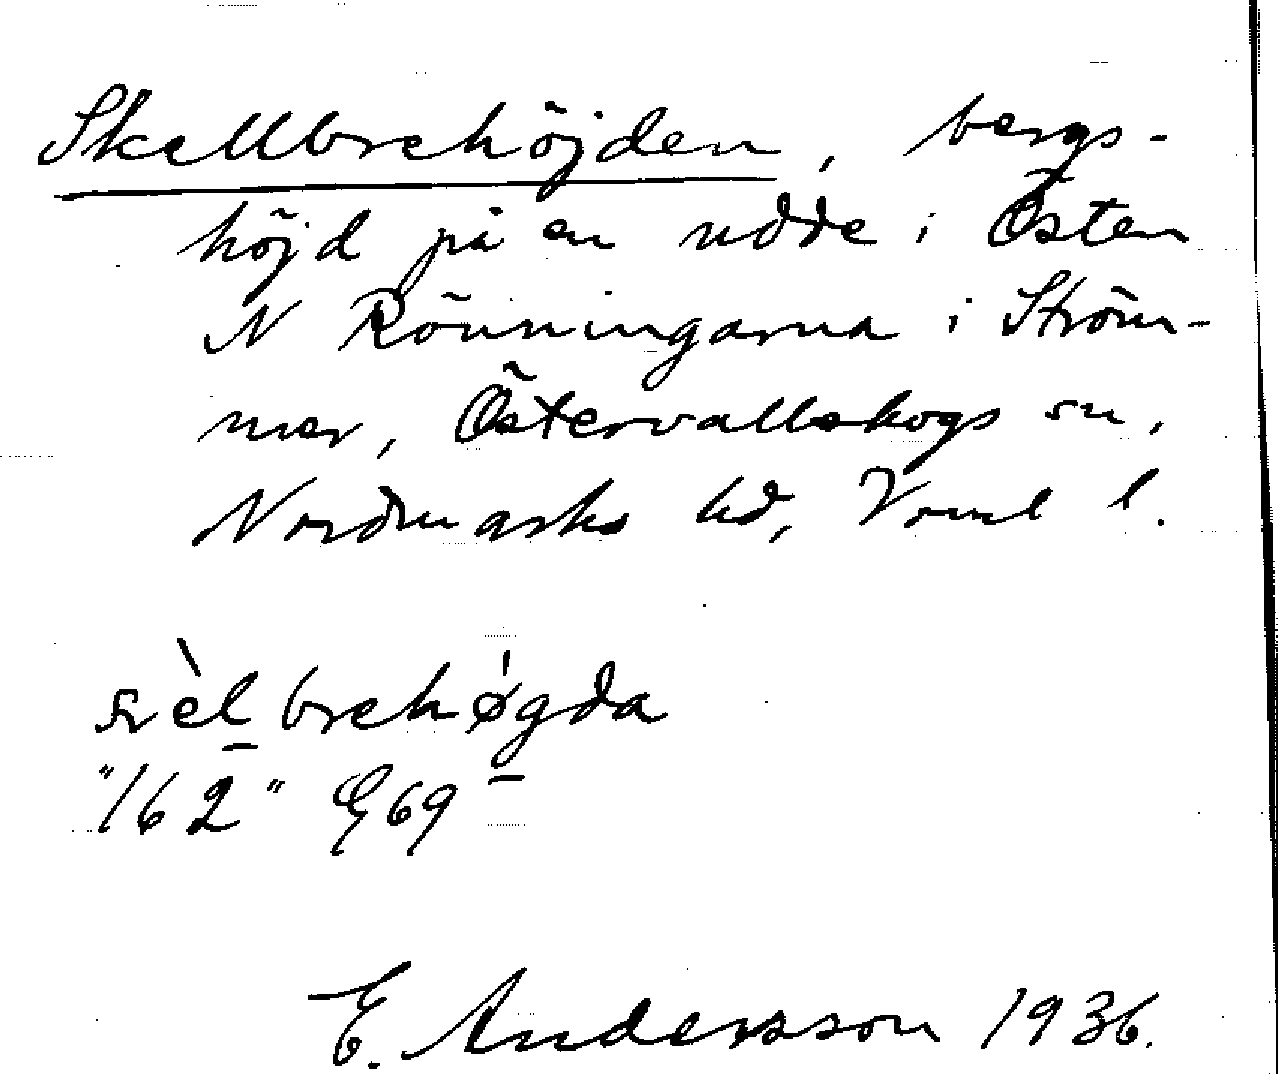 Skellbrehöjden, bergs-
höjd på en udde i Östen
N Rönningarna i Ström-
mer, Östervallskogs sn,
Nordmarks hd, Vrml l.
èl brehøgda
"162" E69
E. Andersson 1936.